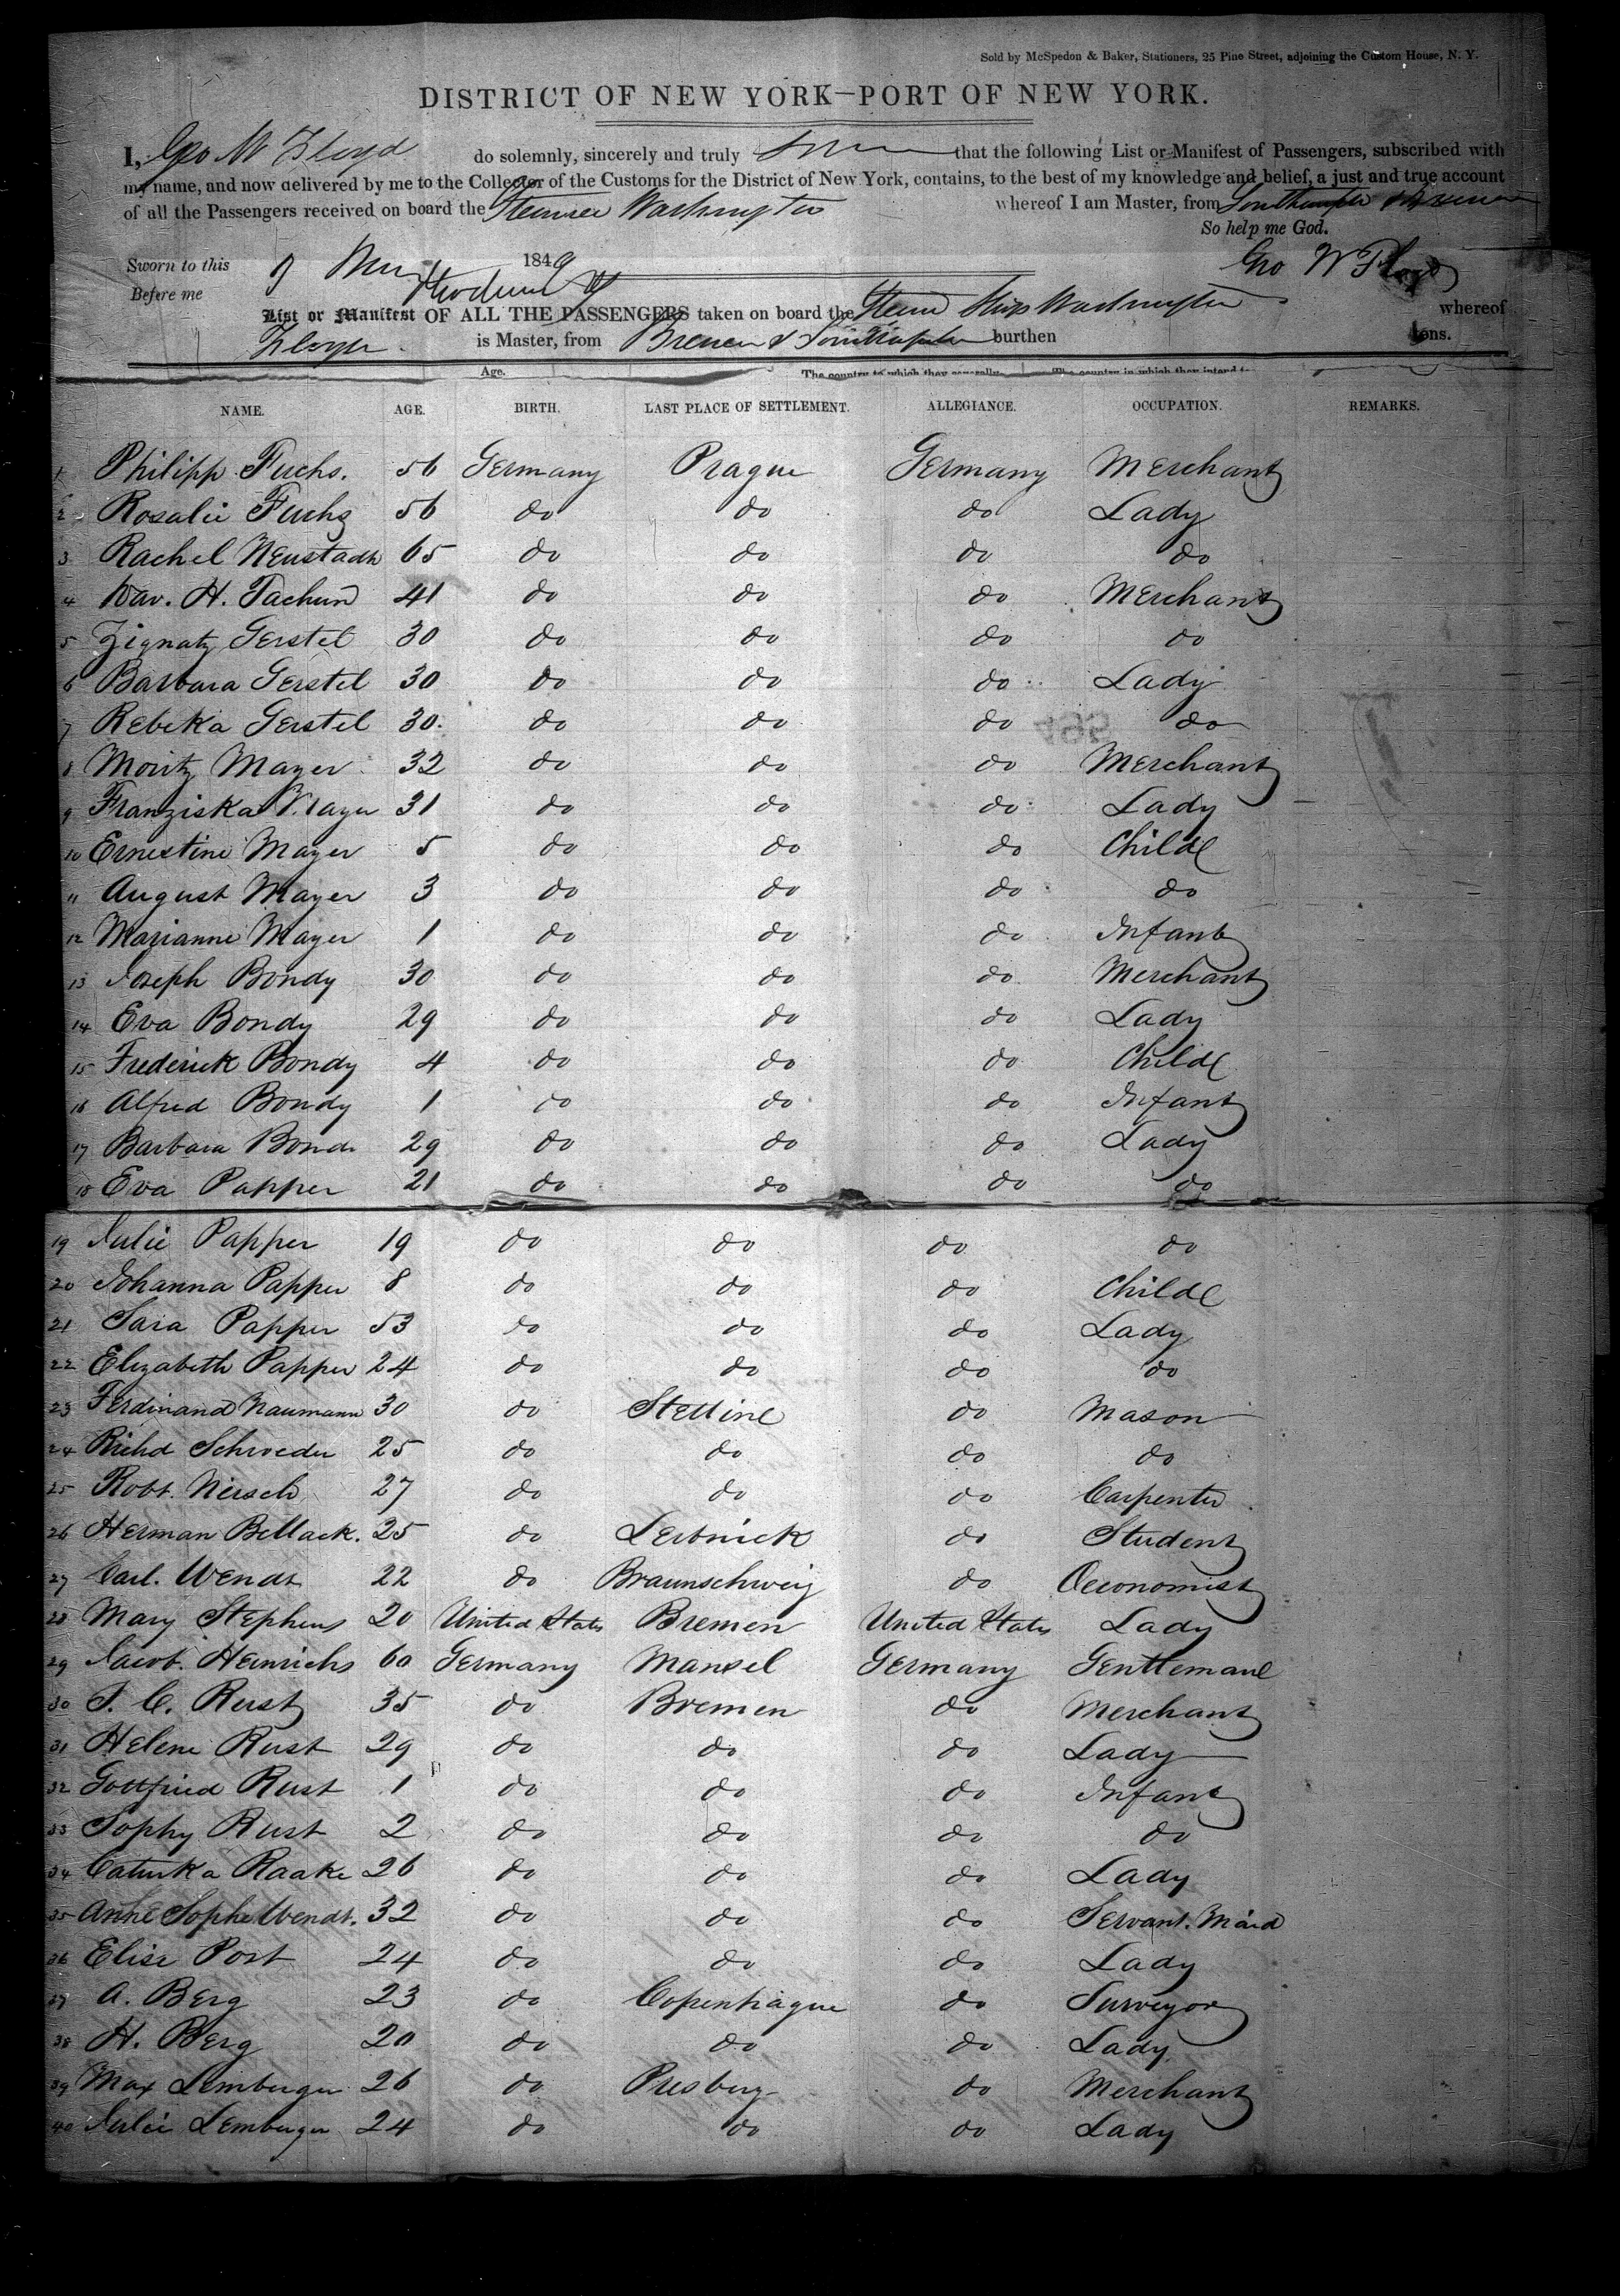 Sold by McSpedon & Baker, Stationers, 25 Pine Street, adjoining the Custom House, N. Y.
DISTRICT OF NEW YORK—PORT OF NEW YORK.
I, Geo W Floyd do solemnly, sincerely and truly that the following List or Manifest of Passengers, subscribed with
my name, and now delivered by me to the Collector of the Customs for the District of New York, contains, to the best of my knowledge and belief, a just and true account
of all the Passengers received on board the Steamer Washington whereof I am Master, from Southampton & Bremen
So help me God.
Sworn to this 9 1849 Geo W Floyd
Before me
List or Manifest OF ALL THE PASSENGERS taken on board the Steam Ship Washington whereof
Floyd is Master, from Bremen & Southampton burthen tons.
Age. The country to which they severally The country in which they intend to
NAME. AGE. BIRTH. LAST PLACE OF SETTLEMENT. ALLEGIANCE. OCCUPATION. REMARKS.
1 Philipp Fuchs. 56 Germany Prague Germany Merchant
2 Rosalie Fuchs 56 do do do Lady
3 Rachel Neustadtl 65 do do do do
4 Dav. H. Tachau 41 do do do Merchant
5 Zignatz Gerstel 30 do do do do
6 Barbara Gerstel 30 do do do Lady
7 Rebeka Gerstel 30. do do do do
8 Moritz Mayer 32 do do do Merchant
9 Franziska Mayer 31 do do do Lady
10 Ernestine Mayer 5 do do do Child
11 August Mayer 3 do do do do
12 Marianne Mayer 1 do do do Infant
13 Joseph Bondy 30 do do do Merchant
14 Eva Bondy 29 do do do Lady
15 Frederick Bondy 4 do do do Child
16 Alfred Bondy 1 do do do Infant
17 Barbara Bondi 29 do do do Lady
18 Eva Papper 21 do do do do
19 Julie Papper 19 do do do do
20 Johanna Papper 8 do do do Child
21 Sara Papper 53 do do do Lady
22 Elizabeth Papper 24 do do do do
23 Ferdinand Naumann 30 do Stettine do Mason
24 Richd Schroeder 25 do do do do
25 Robt. Niersch 27 do do do Carpenter
26 Herman Bellack. 25 do Leibnick do Student
27 Carl. Wendt 22 do Braunschweig do Oeconomist
28 Mary Stephens 20 United States Bremen United States Lady
29 Jacob. Heinrichs 60 Germany Mansel Germany Gentleman
30 T. C. Rust 35 do Bremen do Merchant
31 Helene Rust 29 do do do Lady
32 Gottfried Rust 1 do do do Infant
33 Sophy Rust 2 do do do do
34 Raake 26 do do do Lady
35 Anne Sophe Wendt. 32 do do do Servant. Maid
36 Elise Post 24 do do do Lady
37 A. Berg 23 do Copenhague do Surveyor
38 H. Berg 20 do do do Lady
39 Max Lemberger 26 do Presburg do Merchant
40 Julie Lemberger 24 do do do Lady